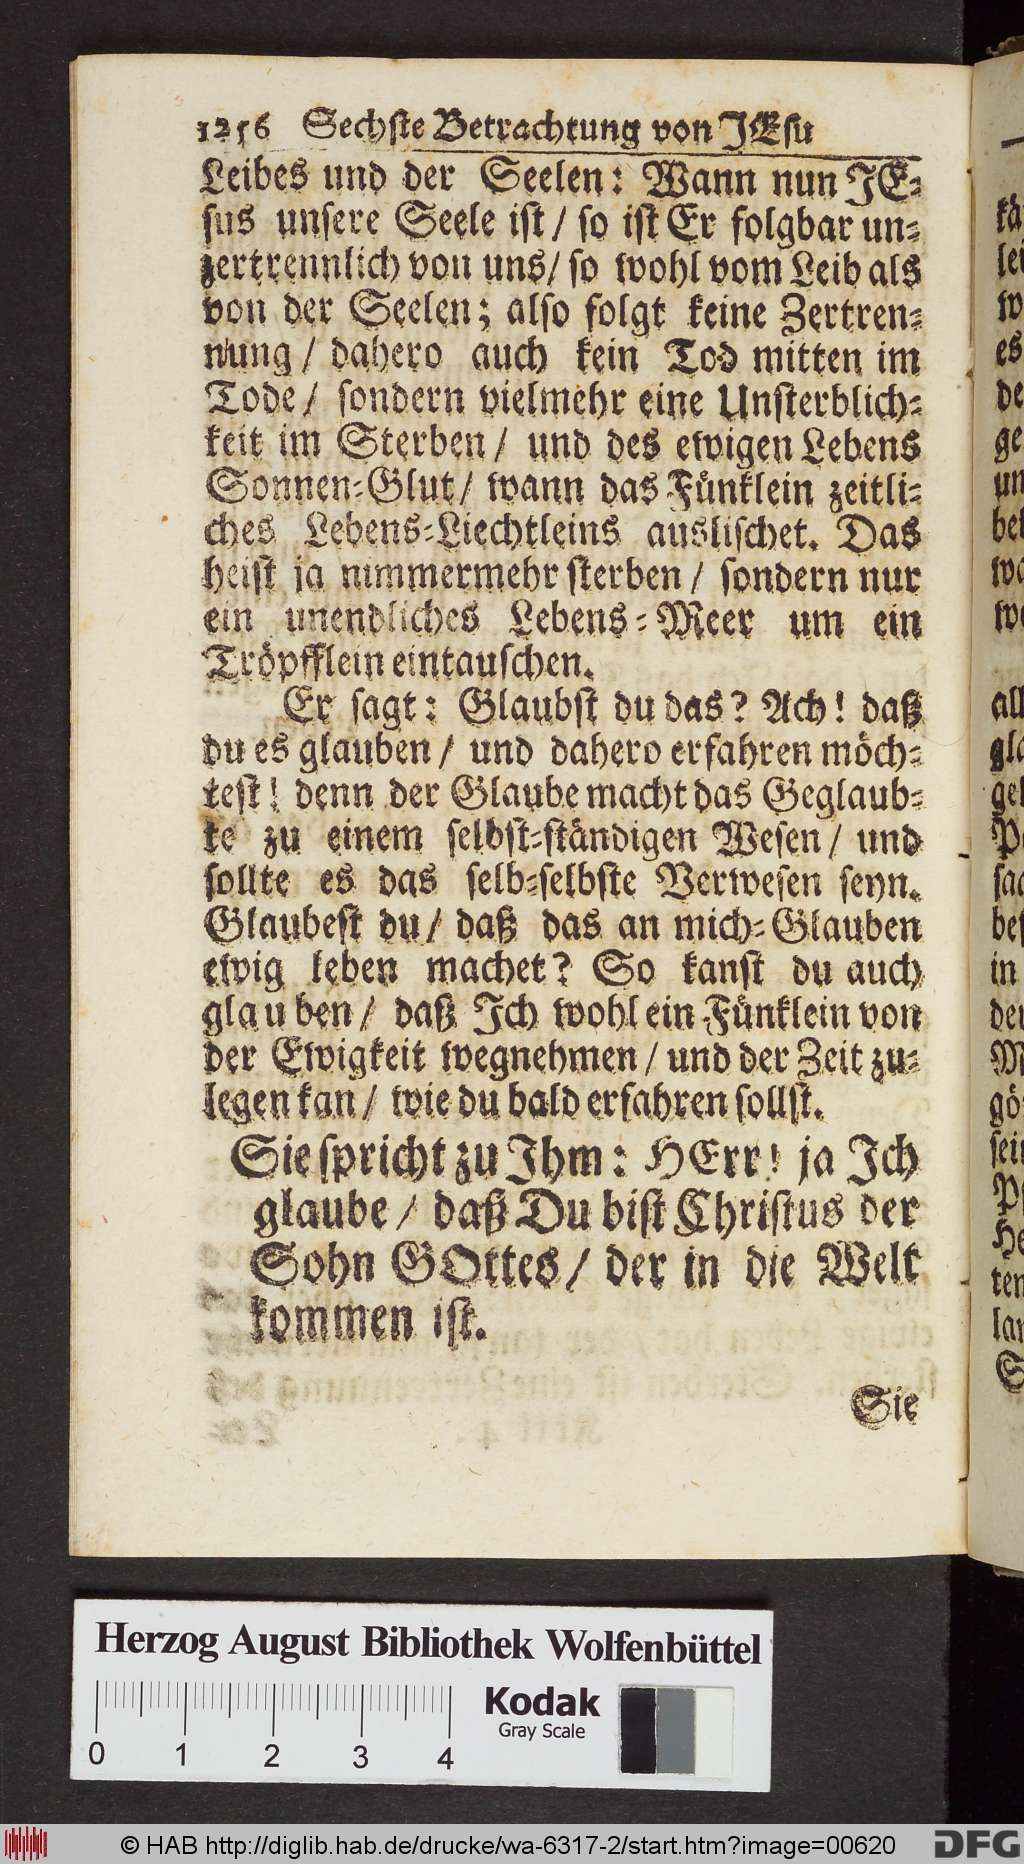 1256 Sechste Betrachtung von JEsu
Leibes und der Seelen: Wann nun JE-
sus unsere Seele ist / so ist Er folgbar un-
zertrennlich von uns / so wohl vom Leib als
von der Seelen; also folgt keine Zertren-
nung / dahero auch kein Tod mitten im
Tode / sondern vielmehr eine Unsterblich-
keit im Sterben / und des ewigen Lebens
Sonnen-Glut / wann das Fünklein zeitli-
ches Lebens-Liechtleins auslischet. Das
heist ja nimmermehr sterben / sondern nur
ein unendliches Lebens-Meer um ein
Tröpfflein eintauschen.
Er sagt: Glaubst du das? Ach! daß
du es glauben / und dahero erfahren möch-
test! denn der Glaube macht das Geglaub-
te zu einem selbst-ständigen Wesen / und
sollte es das selb-selbste Verwesen seyn.
Glaubest du / daß das an mich-Glauben
ewig leben machet? So kanst du auch
glauben / daß Ich wohl ein Fünklein von
der Ewigkeit wegnehmen / und der Zeit zu-
legen kan / wie du bald erfahren sollst.
Sie spricht zu Ihm: HErr! ja Ich
glaube / daß Du bist Christus der
Sohn GOttes / der in die Welt
kommen ist.
Sie
Herzog August Bibliothek Wolfenbüttel
0 1 2 3 4
Kodak
Gray Scale
© HAB http://diglib.hab.de/drucke/wa-6317-2/start.htm?image=00620
DFG